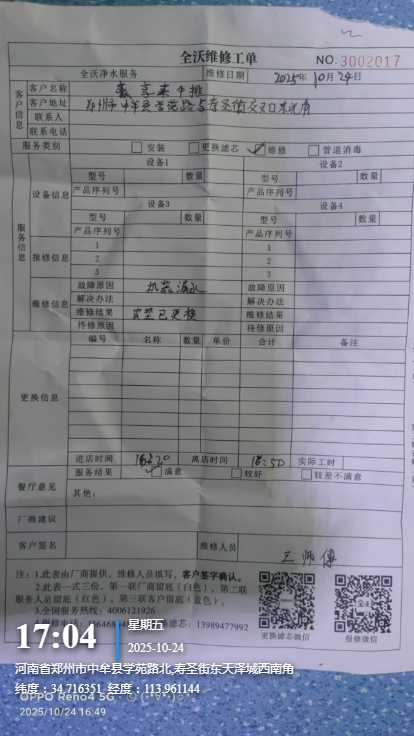 全沃维修工单
NO.3002017
全沃净水服务 维修日期 2025年10月24日
客户信息
客户名称 豪享来牛排
客户地址 郑州市中牟县学苑路与寿圣街交叉口
联系人
联系电话
服务类别 安装 更换滤芯 维修 管道消毒
服务信息
设备信息
设备1 设备2
型号 数量 型号 数量
产品序列号 产品序列号
设备3 设备4
型号 数量 型号 数量
产品序列号 产品序列号
报修信息
1 1
2 2
3 3
维修信息
故障原因 机器漏水 故障原因
解决办法 解决办法
维修结果 皮垫已更换 维修结果
待修原因 待修原因
更换信息
编号 名称 数量 单价 合计 备注
进店时间 16:20 离店时间 16:50 实际工时
餐厅意见
服务结果 满意 较好 较差不满意
其他:
厂商建议
客户签名 维修人员 王师傅
注:1.此表由厂商提供,维修人员填写,客户签字确认。
2.此表一式三份,第一联厂商留底(白色),第二联
服务人员留底(红色),第三联客户留底(蓝色)。
3.全国服务热线:4006121926
滤芯:13989477992
更换滤芯微信 报修微信
17:04 星期五
2025-10-24
河南省郑州市中牟县学苑路北,寿圣街东天泽城西南角
纬度:34.716351 经度:113.961144
OPPO Reno4 5G
2025/10/24 16:49